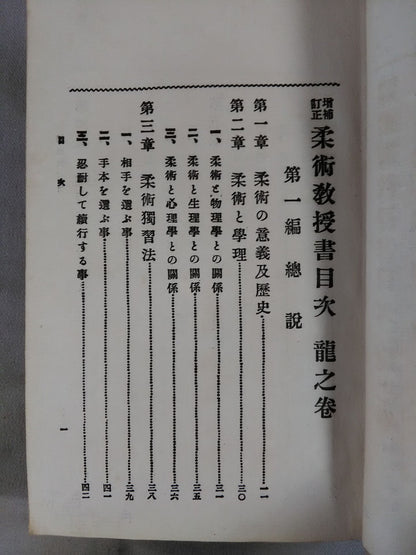 増補
訂正
柔術教授書目次 龍之卷
第一編 總説
第一章 柔術の意義及歷史 一一
第二章 柔術と學理 三〇
一、柔術と物理學との關係 三一
二、柔術と生理學との關係 三五
三、柔術と心理學との關係 三六
第三章 柔術獨習法 三八
一、相手を選ぶ事 三九
二、手本を選ぶ事 四一
三、忍耐して續行する事 四二
目次
一